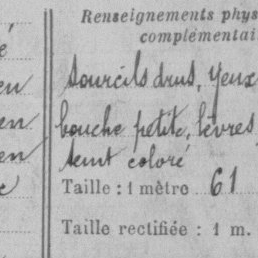 Renseignements phys
complémentai
é
en
en
en
sourcils drus, yeux
bouche petite, lèvres
teint coloré
Taille : 1 mètre 61
Taille rectifiée : 1 m.